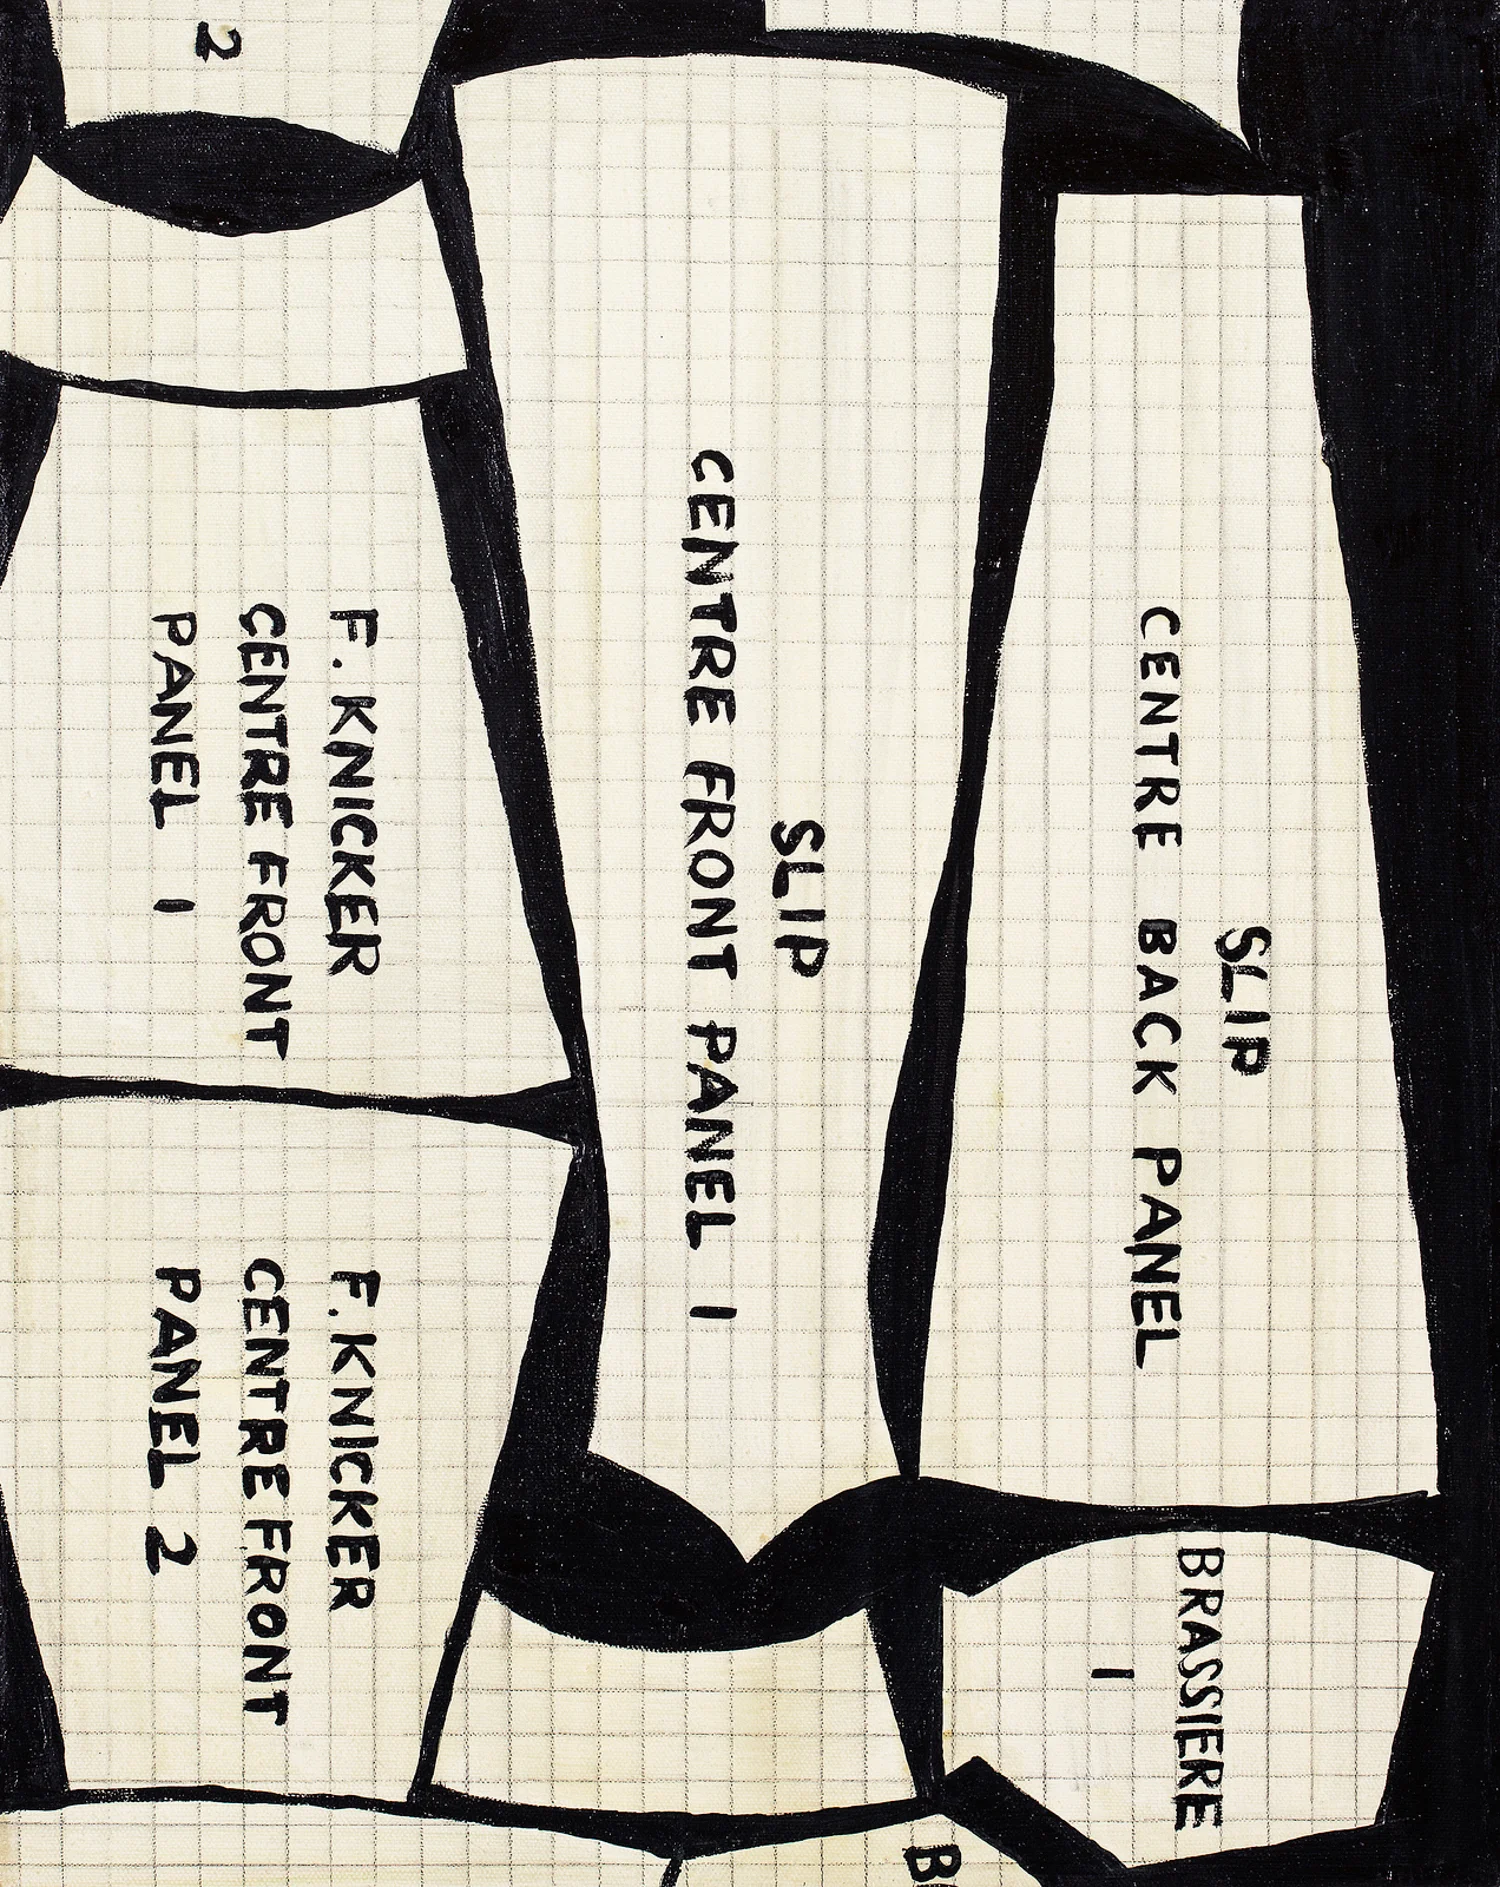 SLIP
CENTRE BACK PANEL
BRASSIERE
1
SLIP
CENTRE FRONT PANEL 1
2
F. KNICKER
CENTRE FRONT
PANEL 1
F. KNICKER
CENTRE FRONT
PANEL 2